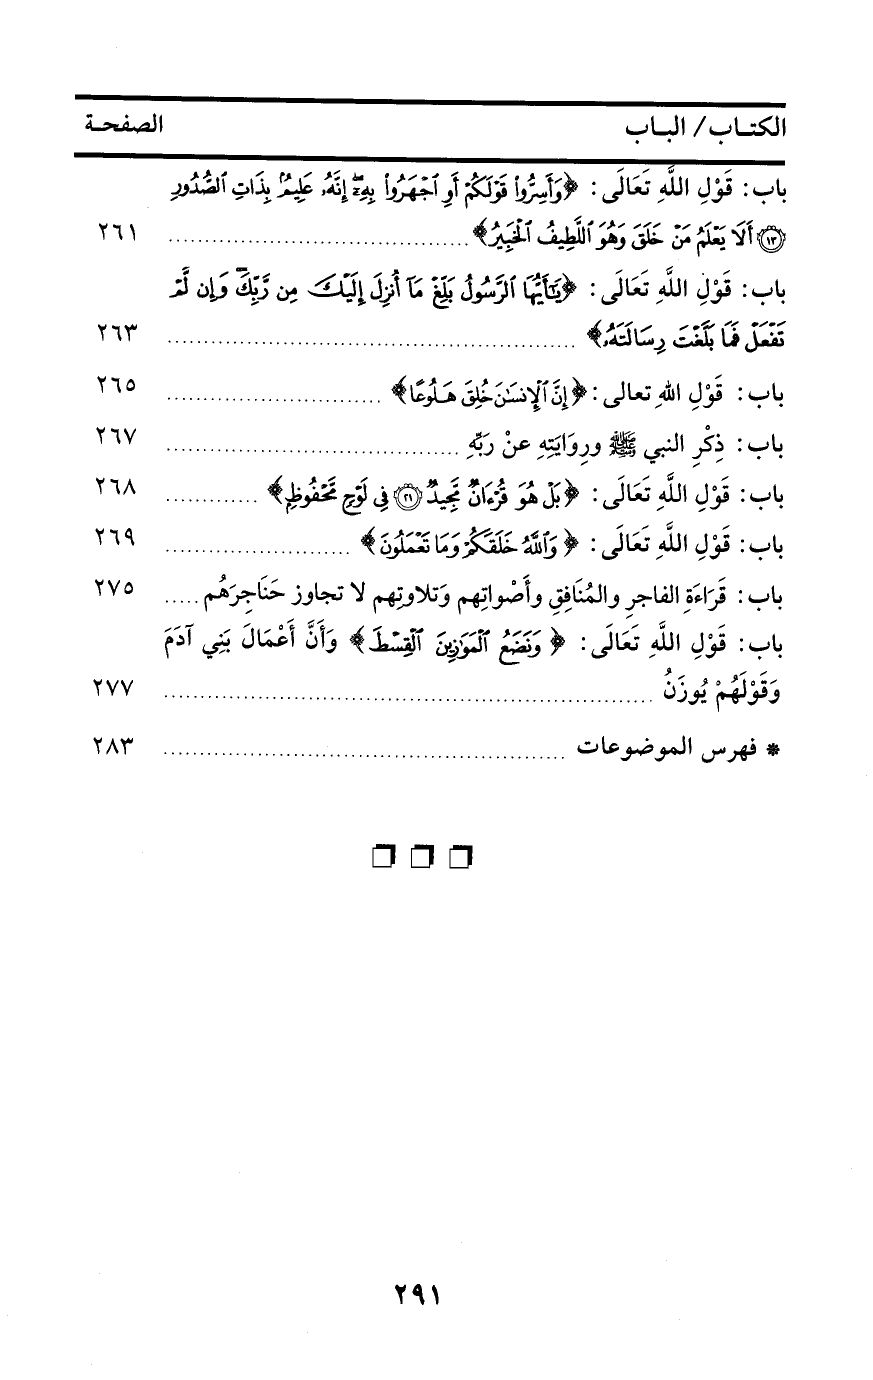 الكتـاب / البـاب الصفحـة
باب: قَوْلِ اللَّهِ تَعَالَى: ﴿وَأَسِرُّوا۟ قَوْلَكُمْ أَوِ ٱجْهَرُوا۟ بِهِۦٓ إِنَّهُۥ عَلِيمٌۢ بِذَاتِ ٱلصُّدُورِ
﴿١٣﴾ أَلَا يَعْلَمُ مَنْ خَلَقَ وَهُوَ ٱللَّطِيفُ ٱلْخَبِيرُ﴾ ........................................ ٢٦١
باب: قَوْلِ اللَّهِ تَعَالَى: ﴿يَٰٓأَيُّهَا ٱلرَّسُولُ بَلِّغْ مَآ أُنزِلَ إِلَيْكَ مِن رَّبِّكَ وَإِن لَّمْ
تَفْعَلْ فَمَا بَلَّغْتَ رِسَالَتَهُۥ﴾ ........................................ ٢٦٣
باب: قَوْلِ اللهِ تعالى: ﴿إِنَّ ٱلْإِنسَٰنَ خُلِقَ هَـلُوعًا﴾ .............................. ٢٦٥
باب: ذِكْرِ النبي ﷺ ورِوَايَتِهِ عنْ رَبِّهِ ........................................ ٢٦٧
باب: قَوْلِ اللَّهِ تَعَالَى: ﴿بَلْ هُوَ قُرْءَانٌ مَّجِيدٌ ﴿٢١﴾ فِى لَوْحٍ مَّحْفُوظٍ﴾ ............. ٢٦٨
باب: قَوْلِ اللَّهِ تَعَالَى: ﴿وَٱللَّهُ خَلَقَكُمْ وَمَا تَعْمَلُونَ﴾ .......................... ٢٦٩
باب: قَرَاءَةِ الفاجرِ والمُنَافِقِ وأَصْواتِهم وَتلاوتِهم لا تجاوز حَنَاجِرَهُم ..... ٢٧٥
باب: قَوْلِ اللَّهِ تَعَالَى: ﴿وَنَضَعُ ٱلْمَوَٰزِينَ ٱلْقِسْطَ﴾ وَأَنَّ أَعْمَالَ بَنِي آدَمَ
وَقَوْلَهُمْ يُوزَنُ ........................................ ٢٧٧
* فهرس الموضوعات ........................................ ٢٨٣
٢٩١